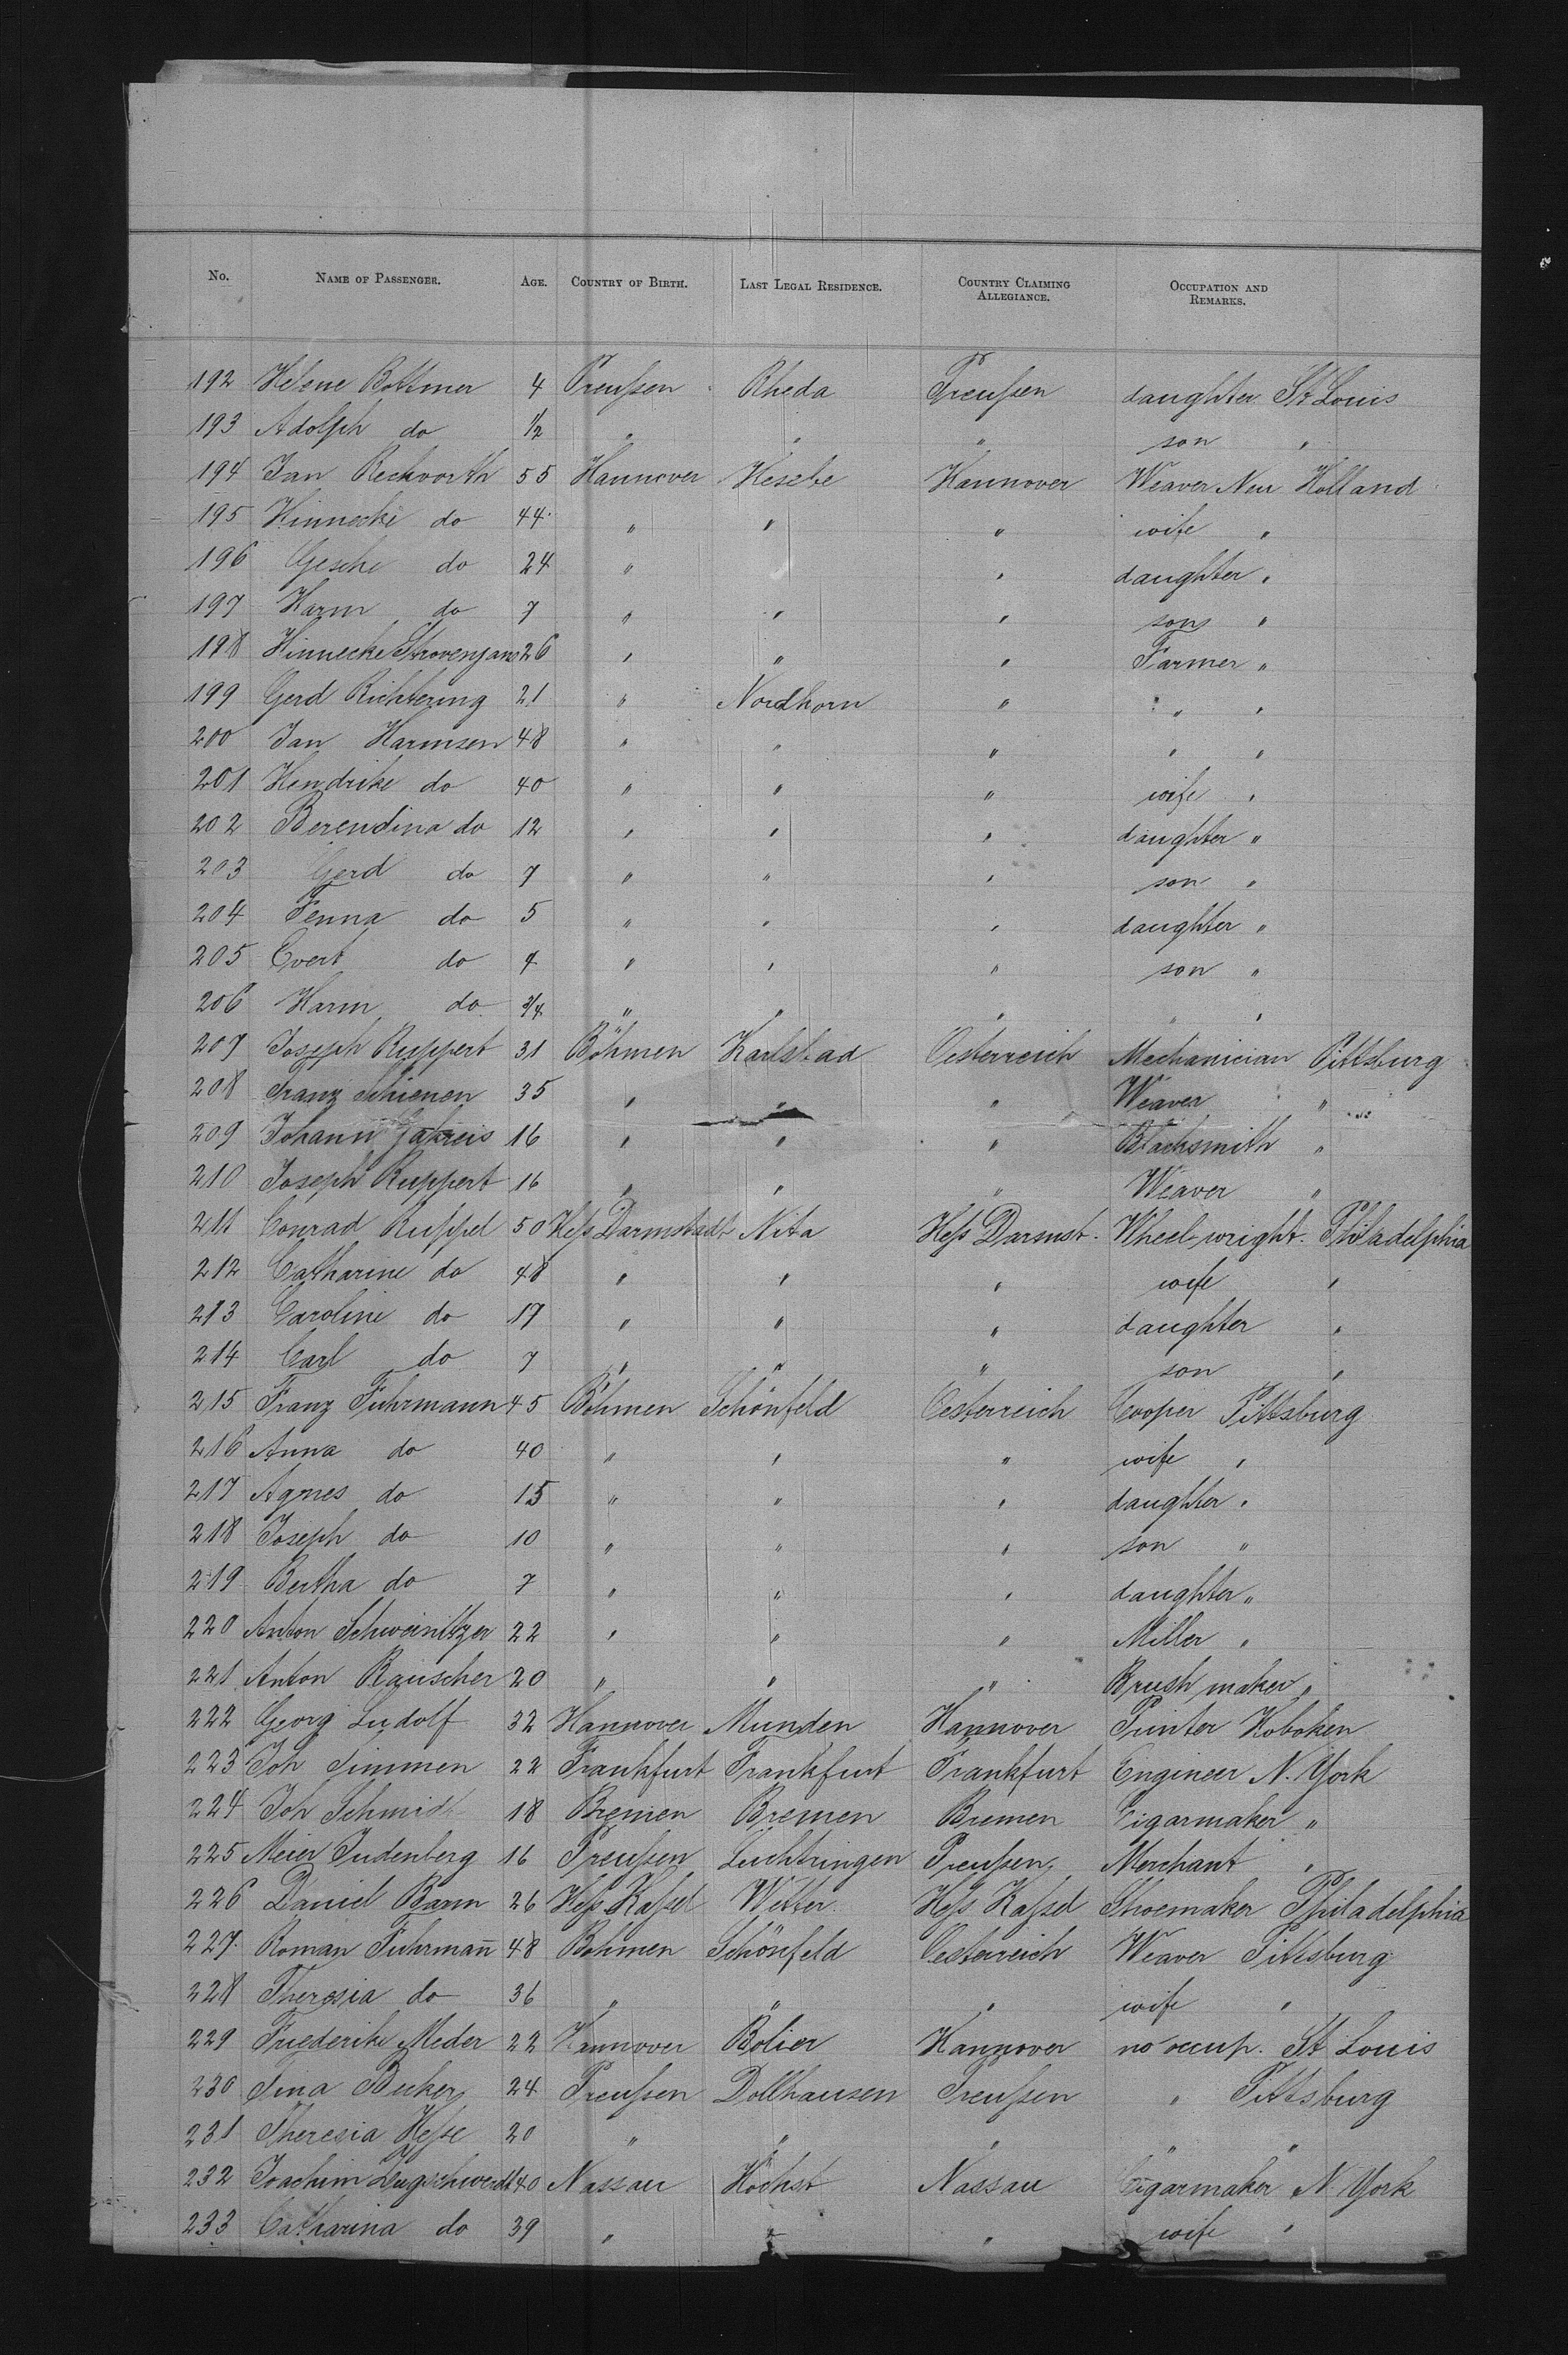 No. NAME OF PASSENGER. AGE. COUNTRY OF BIRTH. LAST LEGAL RESIDENCE. COUNTRY CLAIMING ALLEGIANCE. OCCUPATION AND REMARKS.
192 Helene Bottmer 4 Preußen Rheda Preußen daughter St Louis
193 Adolph do 1/2 " " " son "
194 Jan Reckvorth 55 Hannover Hesebe Hannover Weaver New Holland
195 Hinnecke do 44 " " " wife "
196 Gesche do 24 " " daughter "
197 Harm do 7 " " " son "
198 Hinnecke Strovenjans 26 " " " Farmer "
199 Gerd Richtering 21 " Nordhorn " " "
200 Jan Harmsen 48 " " " " "
201 Hendrike do 40 " " " wife "
202 Berendina do 12 " " " daughter "
203 Gerd do 7 " " " son "
204 Fenna do 5 " " " daughter "
205 Evert do 4 " " " son "
206 Harm do 3/4 " " " " "
207 Joseph Ruppert 31 Böhmen Karlstad Oesterreich Mechanician Pittsburg
208 Franz Schienen 35 " " " Weaver "
209 Johann Jakreis 16 " " " Blacksmith "
210 Joseph Ruppert 16 " " " Weaver "
211 Conrad Ruppel 50 Heß Darmstadt Nita Heß Darmst. Wheelwright. Philadelphia
212 Catharine do 48 " " " wife "
213 Caroline do 17 " " " daughter "
214 Carl do 7 " " " son "
215 Franz Fuhrmann 45 Böhmen Schönfeld Oesterreich Cooper Pittsburg
216 Anna do 40 " " " wife "
217 Agnes do 15 " " " daughter "
218 Joseph do 10 " " " son "
219 Bertha do 7 " " " daughter "
220 Anton Schweinitzer 22 " " " Miller "
221 Anton Rauscher 20 " " " Brush maker "
222 Georg Ludolf 32 Hannover Munden Hannover Printer Hoboken
223 Joh Simmen 22 Frankfurt Frankfurt Frankfurt Engineer N. York
224 Joh Schmidt 18 Bremen Bremen Bremen Cigarmaker "
225 Meier Judenberg 16 Preußen Luchtringen Preußen Merchant "
226 Daniel Barm 26 Heß Kaßel Wetter Heß Kaßel Shoemaker Philadelphia
227 Roman Fuhrman̄ 48 Bohmen Schönfeld Oesterreich Weaver Pittsburg
228 Theresia do 36 " " " wife "
229 Friederike Meder 22 Hannover Bölier Hannover no occup. St Louis
230 Tina Becker 24 Preußen Dollhausen Preußen " Pittsburg
231 Theresia Heße 20 " " " " "
232 Joachim Zugschwerdt 40 Nassau Höchst Nassau Cigarmaker N. York
233 Catharina do 39 " " " wife "